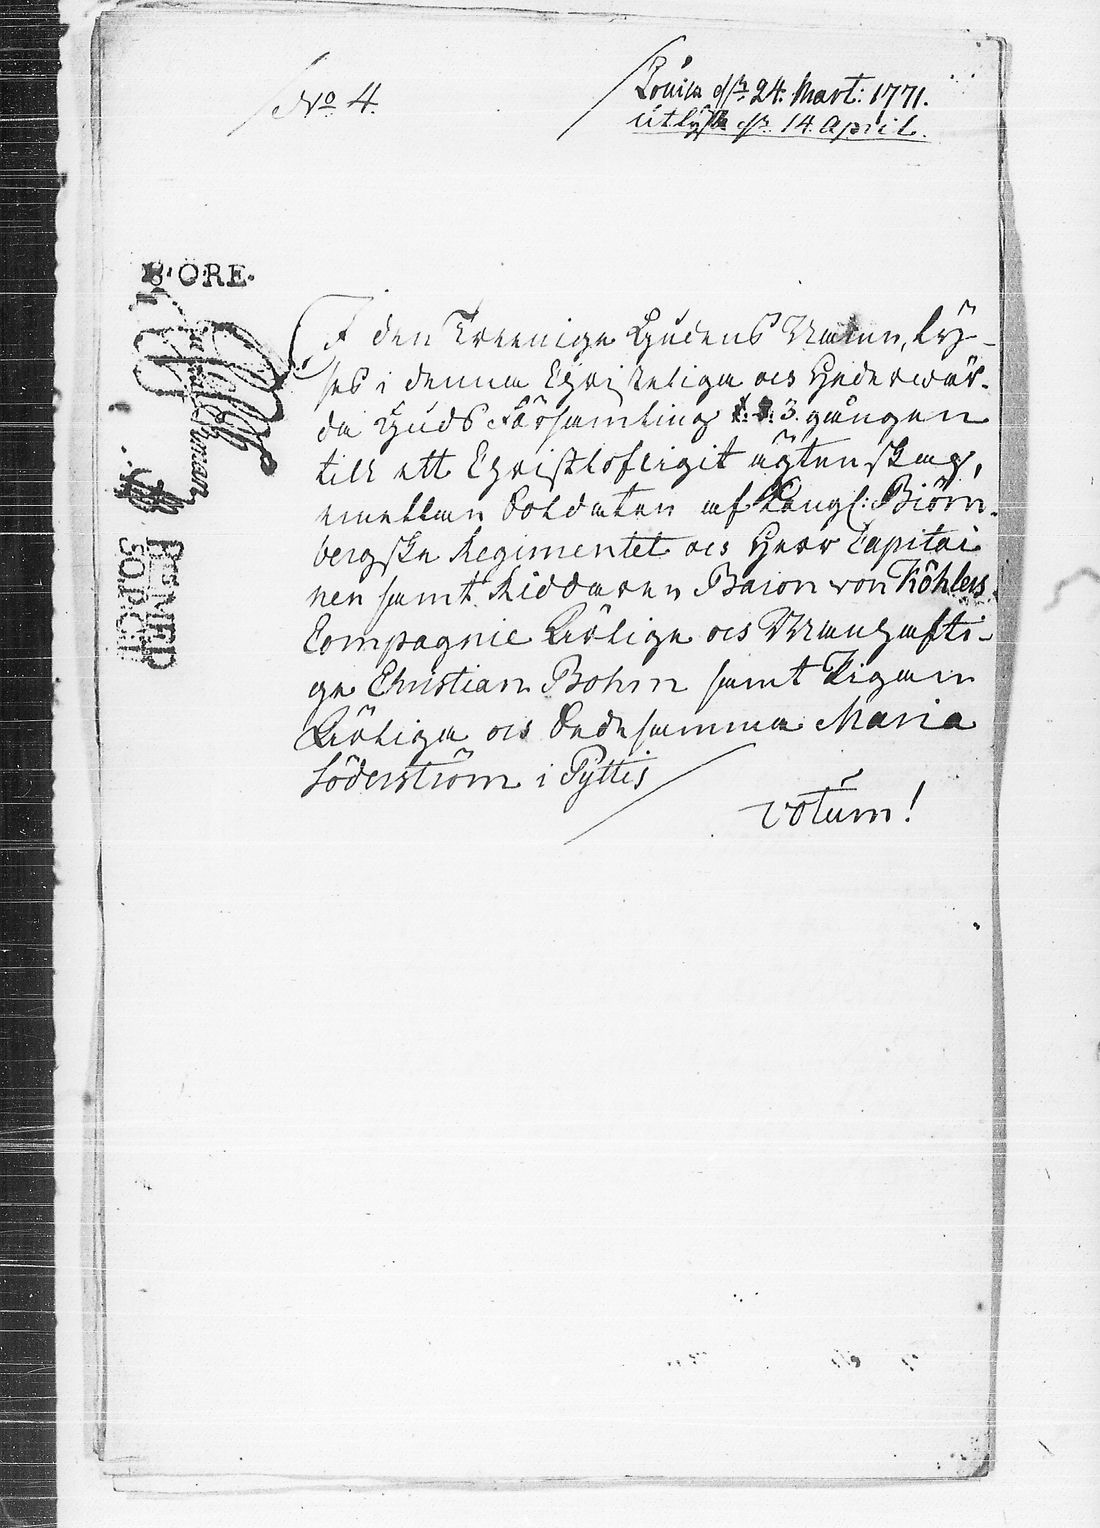 No 4.
Lovisa d. 24. Mart: 1771.
utlyst d. 14. April.
8. ÖRE.
I den Treeniga Gudens Namn, ly-
ses i denna Christeliga och Hederwär-
da Guds Församling 1. 2. 3. gången
till ett Christlofligit ägtenskap,
emellan Soldaten af Kongl: Biörn-
bergske Regimentet och Herr Capitai
nen samt Riddaren Baron von Köhlers
Compagnie Ärlige och Manhafti-
ge Christian Bohm samt Pigan
Ärliga och Dedesamma Maria
Söderström i Pyttis
votum!